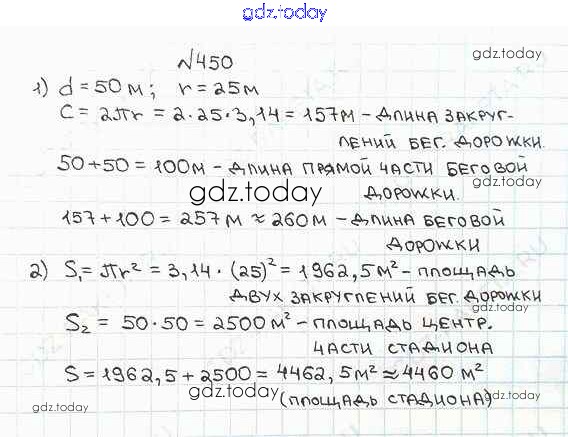 gdz.today
№450
gdz.today
1) d = 50 м; r = 25 м
C = 2πr = 2·25·3,14 = 157 м – длина закруг-
лений бег. дорожки.
50 + 50 = 100 м – длина прямой части беговой
дорожки.
gdz.today
157 + 100 = 257 м ≈ 260 м – длина беговой
дорожки
gdz.today
2) S₁ = πr² = 3,14·(25)² = 1962,5 м² – площадь
двух закруглений бег. дорожки
S₂ = 50·50 = 2500 м² – площадь центр.
части стадиона
S = 1962,5 + 2500 = 4462,5 м² ≈ 4460 м²
(площадь стадиона)
gdz.today
gdz.today
gdz.today